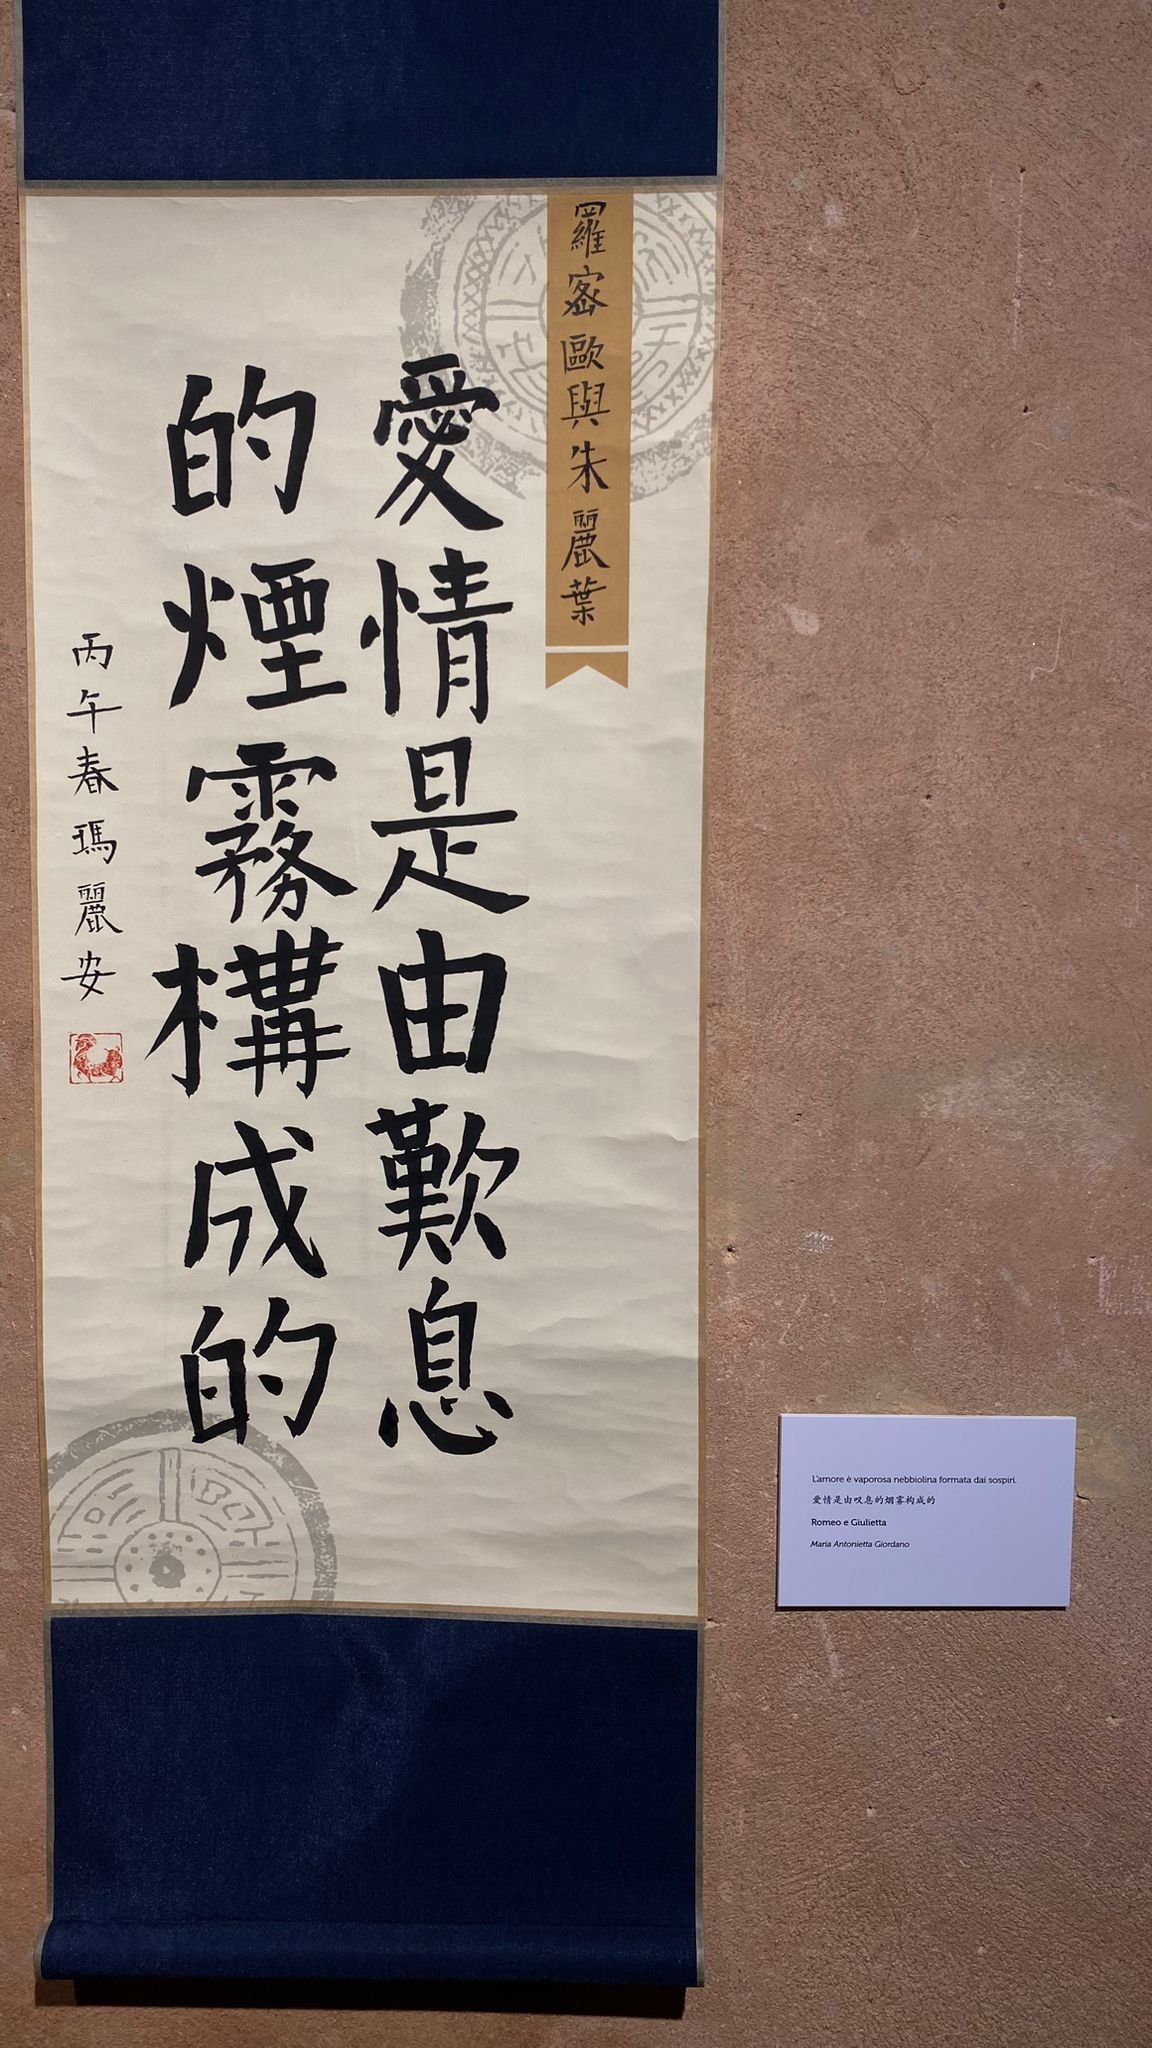 羅密歐與朱麗葉
愛情是由歎息
的煙霧構成的
丙午春瑪麗安
L'amore è vaporosa nebbiolina formata dai sospiri.
爱情是由叹息的烟雾构成的
Romeo e Giulietta
Maria Antonietta Giordano